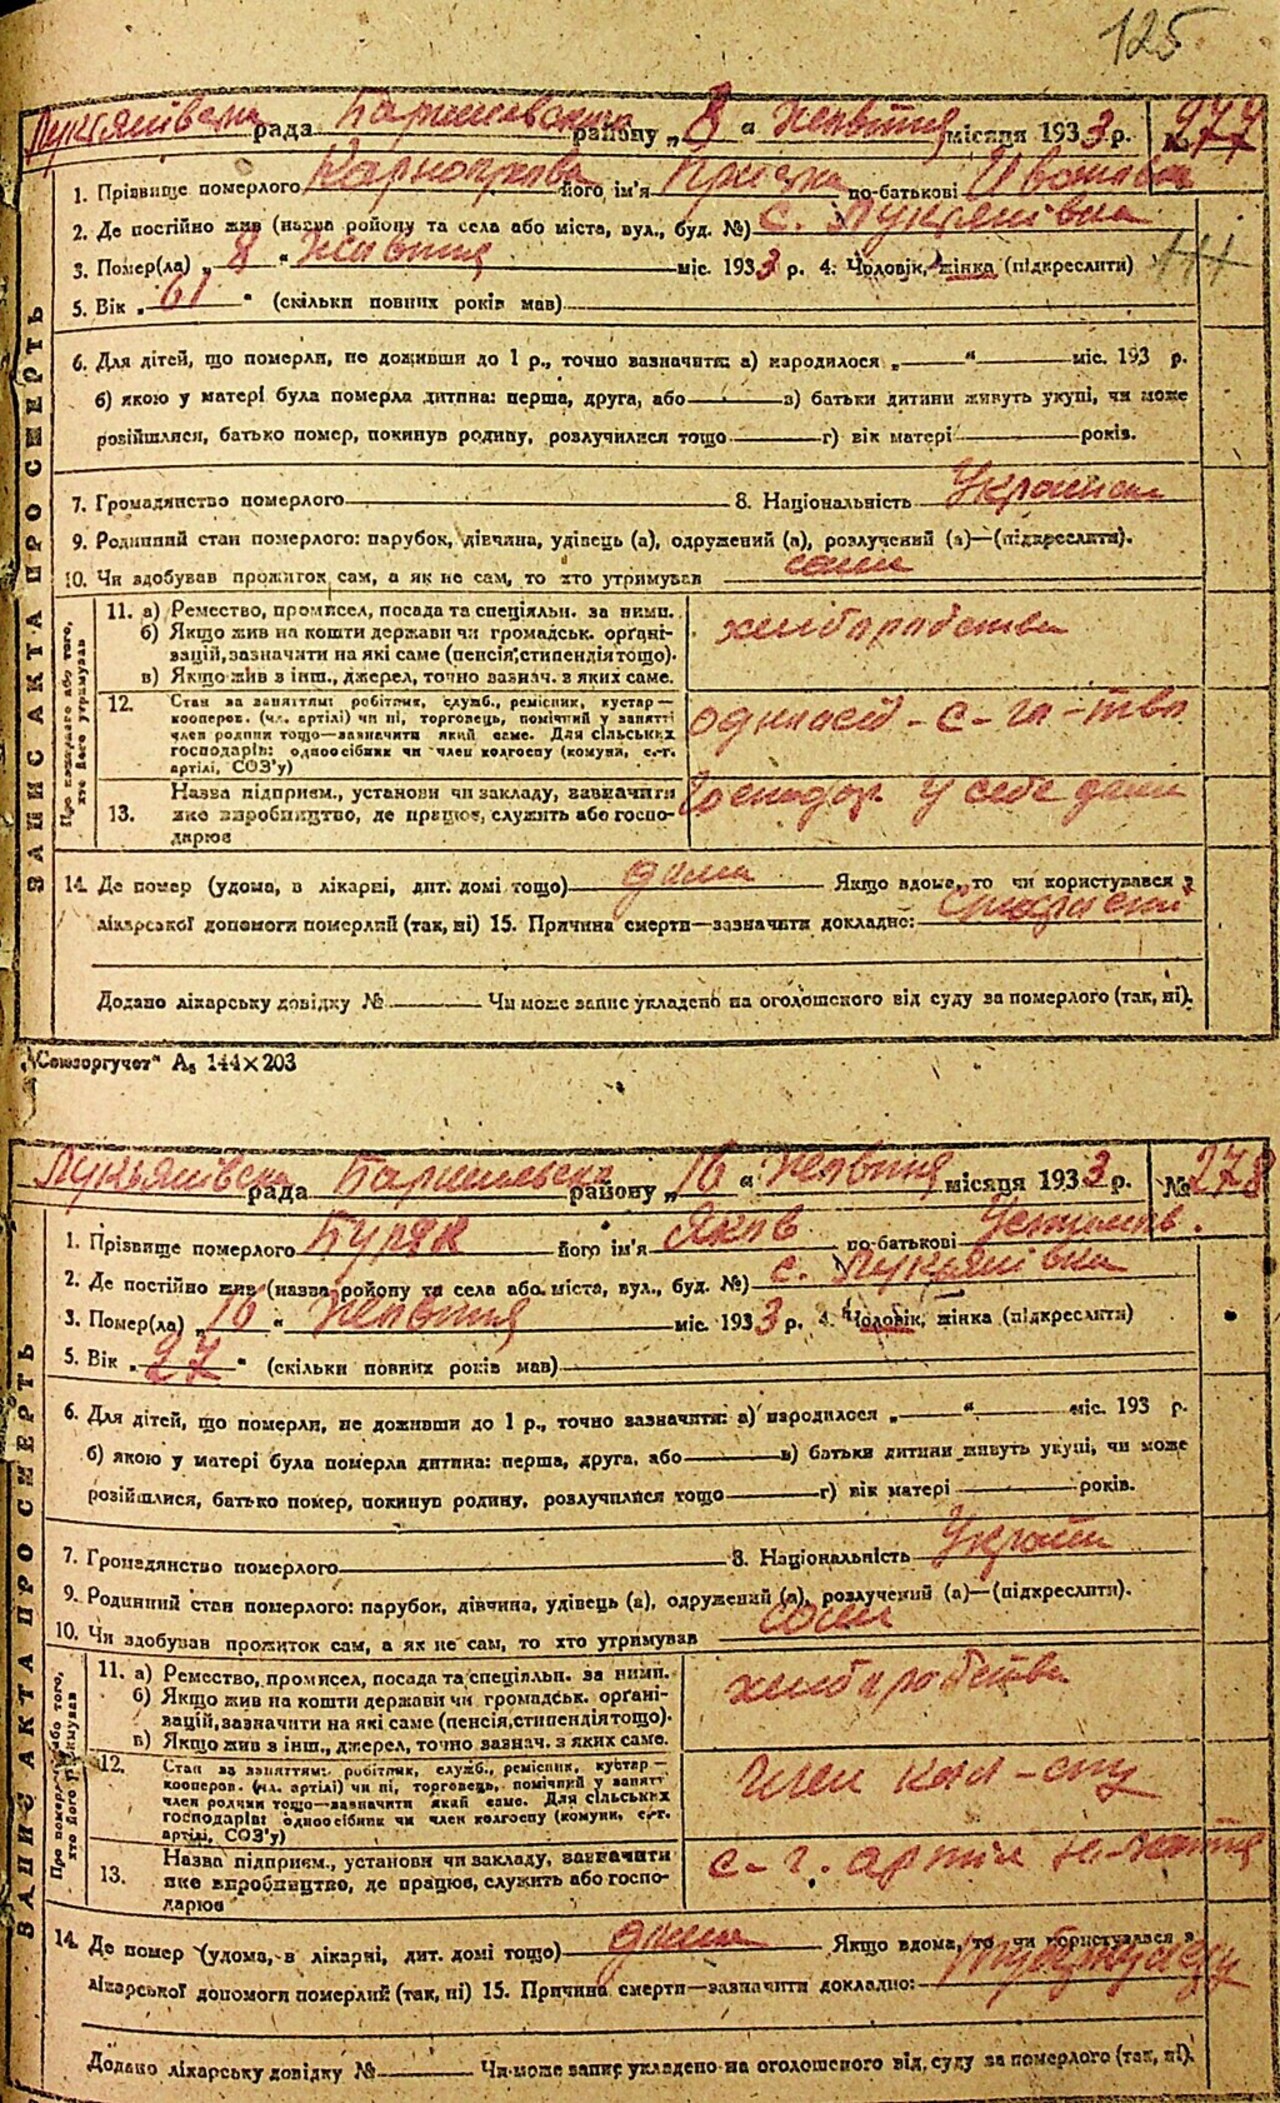 125
Лукянівська рада Баришевського району „8“ Жовтня місяця 1933 р. № 277
1. Прізвище померлого його ім'я по-батькові Ивановна
2. Де постійно жив (назва району та села або міста, вул., буд. №) с. Лукянівка
3. Помер(ла) „8“ Жовтня міс. 1933 р. 4. Чоловік, жінка (підкреслити)
5. Вік „61“ (скільки повних років мав)
6. Для дітей, що померли, не доживши до 1 р., точно зазначити: а) народилося „ “ міс. 193 р.
б) якою у матері була померла дитина: перша, друга, або в) батьки дитини живуть укупі, чи може
розійшлися, батько помер, покинув родину, розлучилися тощо г) вік матері років.
7. Громадянство померлого 8. Національність Українка
9. Родинний стан померлого: парубок, дівчина, удівець (а), одружений (а), розлучений (а)—(підкреслити).
10. Чи здобував прожиток сам, а як не сам, то хто утримував сами
ЗАПИС АКТА ПРО СМЕРТЬ
Про померлого або того, хто його утримував
11. а) Ремество, промисел, посада та спеціяльн. за ними.
б) Якщо жив на кошти держави чи громадськ. орґані-
зацій, зазначити на які саме (пенсія, стипендія тощо).
в) Якщо жив з інш., джерел, точно зазнач. з яких саме.
хлиборобства
12. Стан за заняттям: робітник, служб., ремісник, кустар—
кооперов. (чл. артілі) чи ні, торговець, помічний у занятті
член родини тощо—зазначити який саме. Для сільських
господарів: одноосібник чи член колгоспу (комуни, с.-г.
артілі, СОЗ'у)
13. Назва підприєм., установи чи закладу, зазначити
яке виробництво, де працює, служить або госпо-
дарює
Господар. у себе дома
14. Де помер (удома, в лікарні, дит. домі тощо) дома Якщо вдома, то чи користувався з
лікарської допомоги померлий (так, ні) 15. Причина смерти—зазначити докладно:
Додано лікарську довідку № Чи може запис укладено на оголошеного від суду за померлого (так, ні).
„Союзоргучет“ А₅ 144×203
Лукьянівська рада Баришевська району „16“ Жовтня місяця 1933 р. № 278
1. Прізвище померлого Буряк його ім'я Яков по-батькові Устимов.
2. Де постійно жив (назва району та села або міста, вул., буд. №) с. Лукянівка
3. Помер(ла) „16“ Жовтня міс. 1933 р. 4. Чоловік, жінка (підкреслити)
5. Вік „27“ (скільки повних років мав)
6. Для дітей, що померли, не доживши до 1 р., точно зазначити: а) народилося „ “ міс. 193 р.
б) якою у матері була померла дитина: перша, друга, або в) батьки дитини живуть укупі, чи може
розійшлися, батько помер, покинув родину, розлучилися тощо г) вік матері років.
7. Громадянство померлого 8. Національність
9. Родинний стан померлого: парубок, дівчина, удівець (а), одружений (а), розлучений (а)—(підкреслити).
10. Чи здобував прожиток сам, а як не сам, то хто утримував сами
ЗАПИС АКТА ПРО СМЕРТЬ
Про померлого або того, хто його утримував
11. а) Ремество, промисел, посада та спеціяльн. за ними.
б) Якщо жив на кошти держави чи громадськ. орґані-
зацій, зазначити на які саме (пенсія, стипендія тощо).
в) Якщо жив з інш., джерел, точно зазнач. з яких саме.
хлиборобства
12. Стан за заняттям: робітник, служб., ремісник, кустар—
кооперов. (чл. артілі) чи ні, торговець, помічний у занятті
член родини тощо—зазначити який саме. Для сільських
господарів: одноосібник чи член колгоспу (комуни, с.-г.
артілі, СОЗ'у)
член кол-спу
13. Назва підприєм., установи чи закладу, зазначити
яке виробництво, де працює, служить або госпо-
дарює
с-г. артіл
14. Де помер (удома, в лікарні, дит. домі тощо) дома Якщо вдома, то чи користувався з
лікарської допомоги померлий (так, ні) 15. Причина смерти—зазначити докладно:
Додано лікарську довідку № Чи може запис укладено на оголошеного від суду за померлого (так, ні).